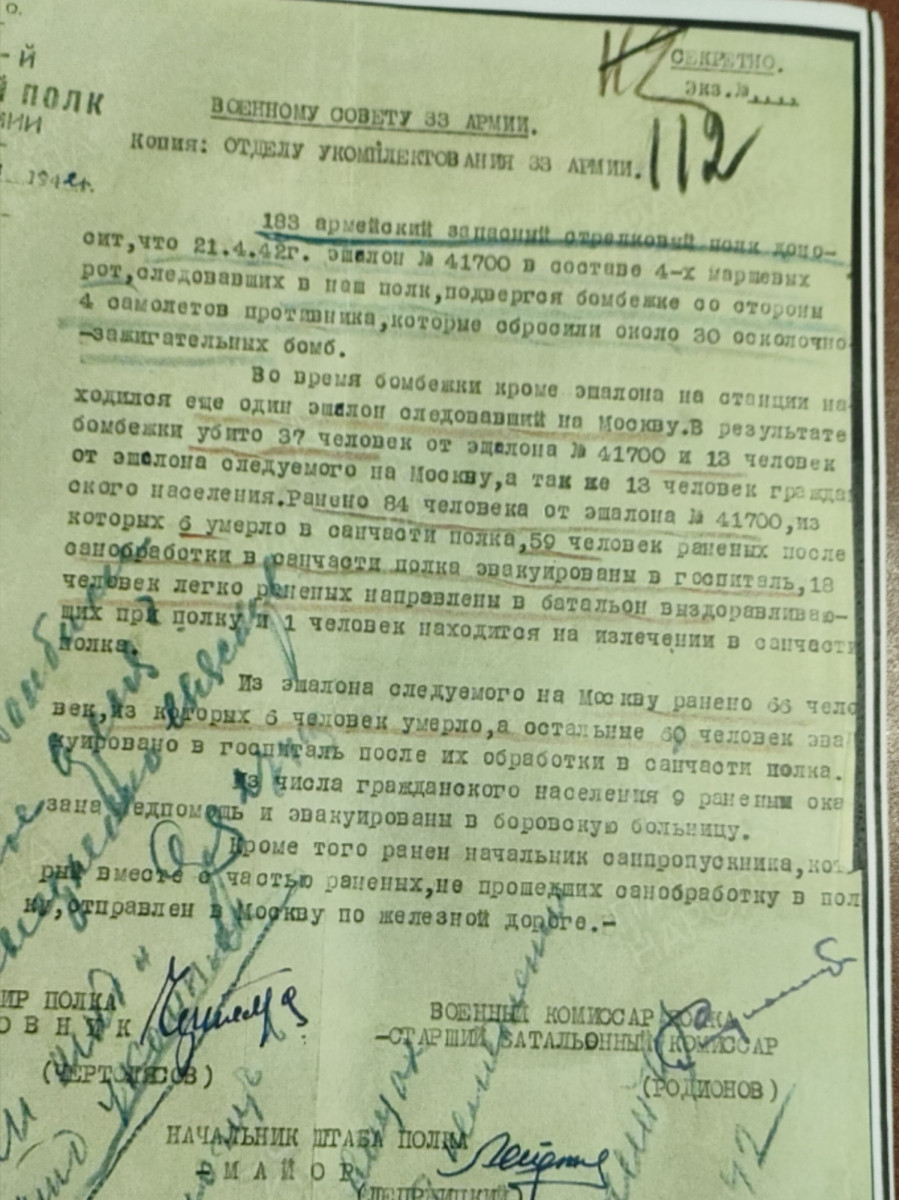 О.
-Й
Й ПОЛК
МИИ
1942г.
СЕКРЕТНО.
экз.№....
112
ВОЕННОМУ СОВЕТУ 33 АРМИИ.
Копия: ОТДЕЛУ УКОМПЛЕКТОВАНИЯ 33 АРМИИ.
183 армейский запасный стрелковый полк доно-
сит,что 21.4.42г. эшелон № 41700 в составе 4-х маршевых
рот,следовавших в наш полк,подвергся бомбежке со стороны
4 самолетов противника,которые сбросили около 30 осколочно
-зажигательных бомб.
Во время бомбежки кроме эшалона на станции на-
ходился еще один эшалон следовавший на Москву.В результате
бомбежки убито 37 человек от эщалона № 41700 и 13 человек
от эшалона следуемого на Москву,а так же 13 человек гражда
ского населения.Ранено 84 человека от эшалона № 41700,из
которых 6 умерло в санчасти полка,59 человек раненых после
санобработки в санчасти полка эвакуированы в госпиталь,18
человек легко раненых направлены в батальон выздоравливаю-
щих при полку и 1 человек находится на излечении в санчасти
полка.
Из эшалона следуемого на Москву ранено 66 чело
век,из которых 6 человек умерло,а остальные 60 человек эва
куировано в госпиталь после их обработки в санчасти полка.
Из числа гражданского населения 9 раненым ока
зана медпомощь и эвакуированы в боровскую больницу.
Кроме того ранен начальник санпропускника,кото
рый вместе с частью раненых,не прошедших санобработку в пол
ку,отправлен в Москву по железной дороге.-
ИР ПОЛКА
ОВНИК
(ЧЕРТОЛЯСОВ)
ВОЕННЫЙ КОМИССАР ПОЛКА
-СТАРШИЙ БАТАЛЬОННЫЙ КОМИССАР
(РОДИОНОВ)
НАЧАЛЬНИК ШТАБА ПОЛКА
-МАЙОР